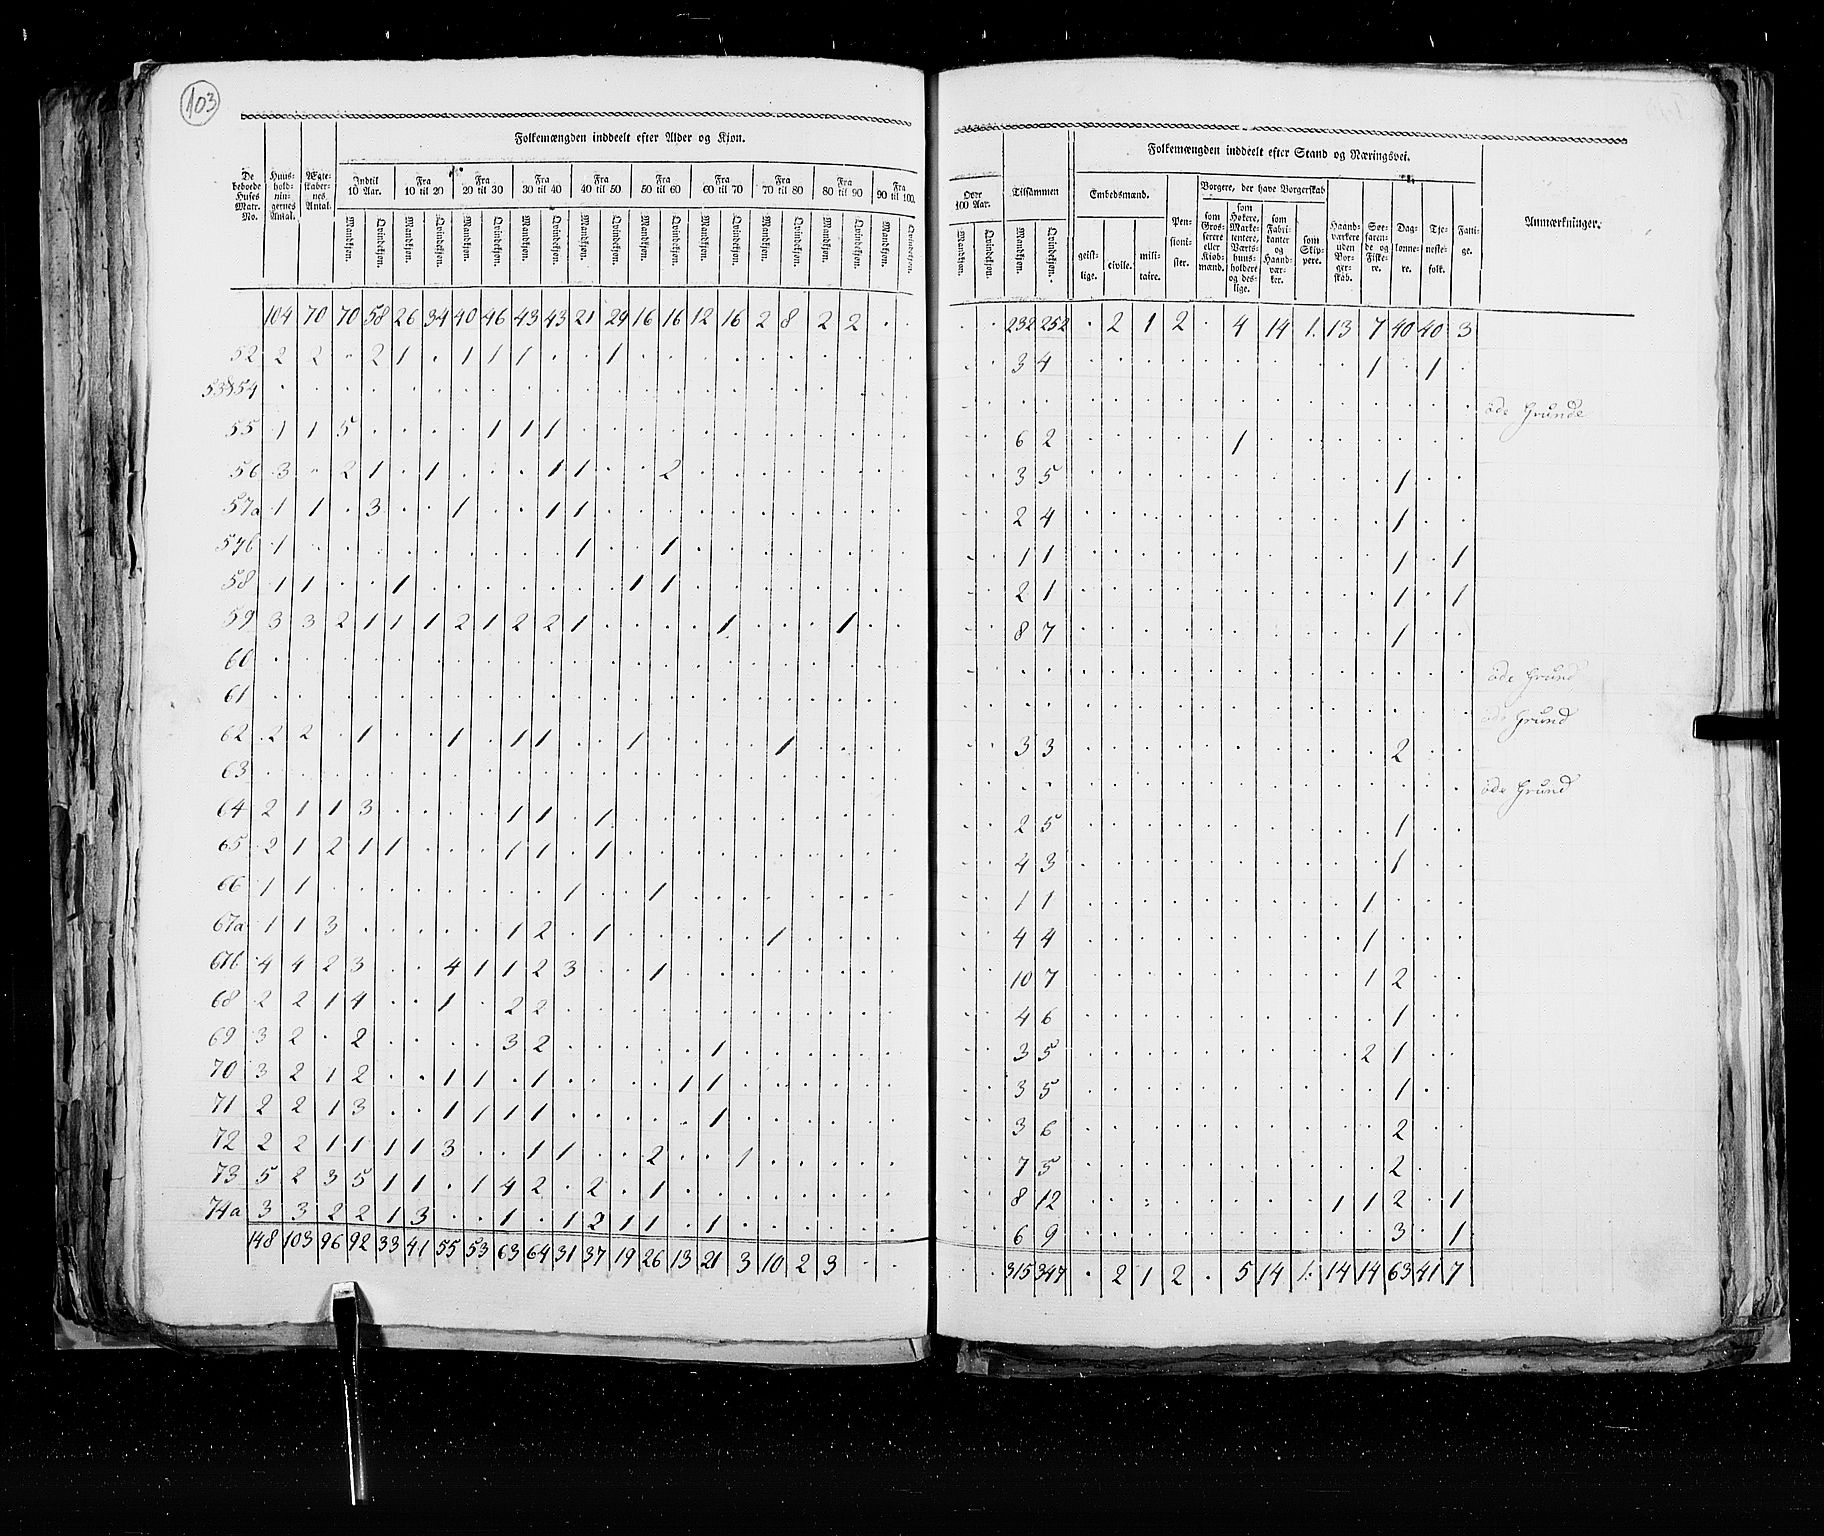 103
Folkemængden inddeelt efter Alder og Kjøn.
De beboede Huses Matr. No.
Huus-hold-nin-gernes Antal.
Ægte-skaber-nes Antal.
Indtil 10 Aar.
Fra 10 til 20
Fra 20 til 30
Fra 30 til 40
Fra 40 til 50
Fra 50 til 60
Fra 60 til 70
Fra 70 til 80
Fra 80 til 90
Fra 90 til 100.
Mandkjøn. Qvindekjøn. Mandkjøn. Qvindekjøn. Mandkjøn. Qvindekjøn. Mandkjøn. Qvindekjøn. Mandkjøn. Qvindekjøn. Mandkjøn. Qvindekjøn. Mandkjøn. Qvindekjøn. Mandkjøn. Qvindekjøn. Mandkjøn. Qvindekjøn. Mandkjøn. Qvindekjøn.
104 70 70 58 26 34 40 46 43 43 21 29 16 16 12 16 2 8 2 2 . .
52 2 2 . 2 1 . 1 1 1 . . 1
53&54
55 1 1 5 . . . . 1 1 1
56 3 . 2 1 . 1 . . . 1 1 . . 2
57a 1 1 . 3 . . 1 . . 1 1
57b 1 . . . . . . . . . 1 . . 1
58 1 1 . . 1 . . . . . . . 1 1
59 3 3 2 1 1 1 2 1 2 2 1 . . . . 1 . . . 1 . .
60
61
62 2 2 . 1 . . 1 . 1 1 . . 1 . . . . 1
63
64 2 1 1 3 . . . . 1 1 . 1
65 2 1 2 1 1 . . . 1 1 . 1
66 1 1 . . . . . . . . 1 . . 1
67a 1 1 3 . . . . . 1 2 . 1 . . . . . 1
67b 4 4 2 3 . . 4 1 1 2 3 . . 1
68 2 2 1 4 . . 1 . 2 2
69 3 2 . 2 . . . . 3 2 . . . . . 1
70 3 2 1 2 . . 1 1 . 1 . . . . 1 1
71 2 2 1 3 . . 1 1 1 1 . . . . . 1
72 2 2 1 1 1 1 3 . . 1 1 . . 2 . . 1
73 5 2 3 5 1 1 . 1 4 2 . 2 . 1
74a 3 3 2 2 1 3 . . 1 . 1 2 1 1 . 1
148 103 96 92 33 41 55 53 63 64 31 37 19 26 13 21 3 10 2 3 . .
Folkemængden inddeelt efter Stand og Næringsvei.
Over 100 Aar.
Tilsammen
Embedsmænd.
Pen-sioni-ster.
Borgere, der have Borgerskab
Haand-værkere uden Bor-ger-skab.
Søe-farende og Fiske-re.
Dag-lønne-re.
Tje-neste-folk.
Fatti-ge.
Anmærkninger.
Mandkjøn. Qvindekjøn. Mandkjøn. Qvindekjøn.
geist-lige. civile. mili-taire.
som Gros-serere eller Kiøb-mænd.
som Høkere, Marke-tentere, Værts-huus-holdere og des-lige.
som Fabri-kanter og Haand-vær-ker.
som Skip-pere.
. . 232 252 . 2 1 2 . 4 14 1. 13 7 40 40 3
3 4 1 . 1 .
öde Grunde
6 2 1
3 5 1 . .
2 4 1 . .
1 1 1 . 1
2 1 1 . 1
8 7 1 . .
öde Grund
öde Grund
3 3 2 . .
öde Grund
2 5 1 . .
4 3 1 . .
1 1 1
4 4 1
10 7 1 2
4 6 1
3 5 2 1
3 5 1
3 6 2
7 5 2
8 12 1 1 2 . 1
6 9 3 . 1
. . 315 347 . 2 1 2 . 5 14 1. 14 14 63 41 7